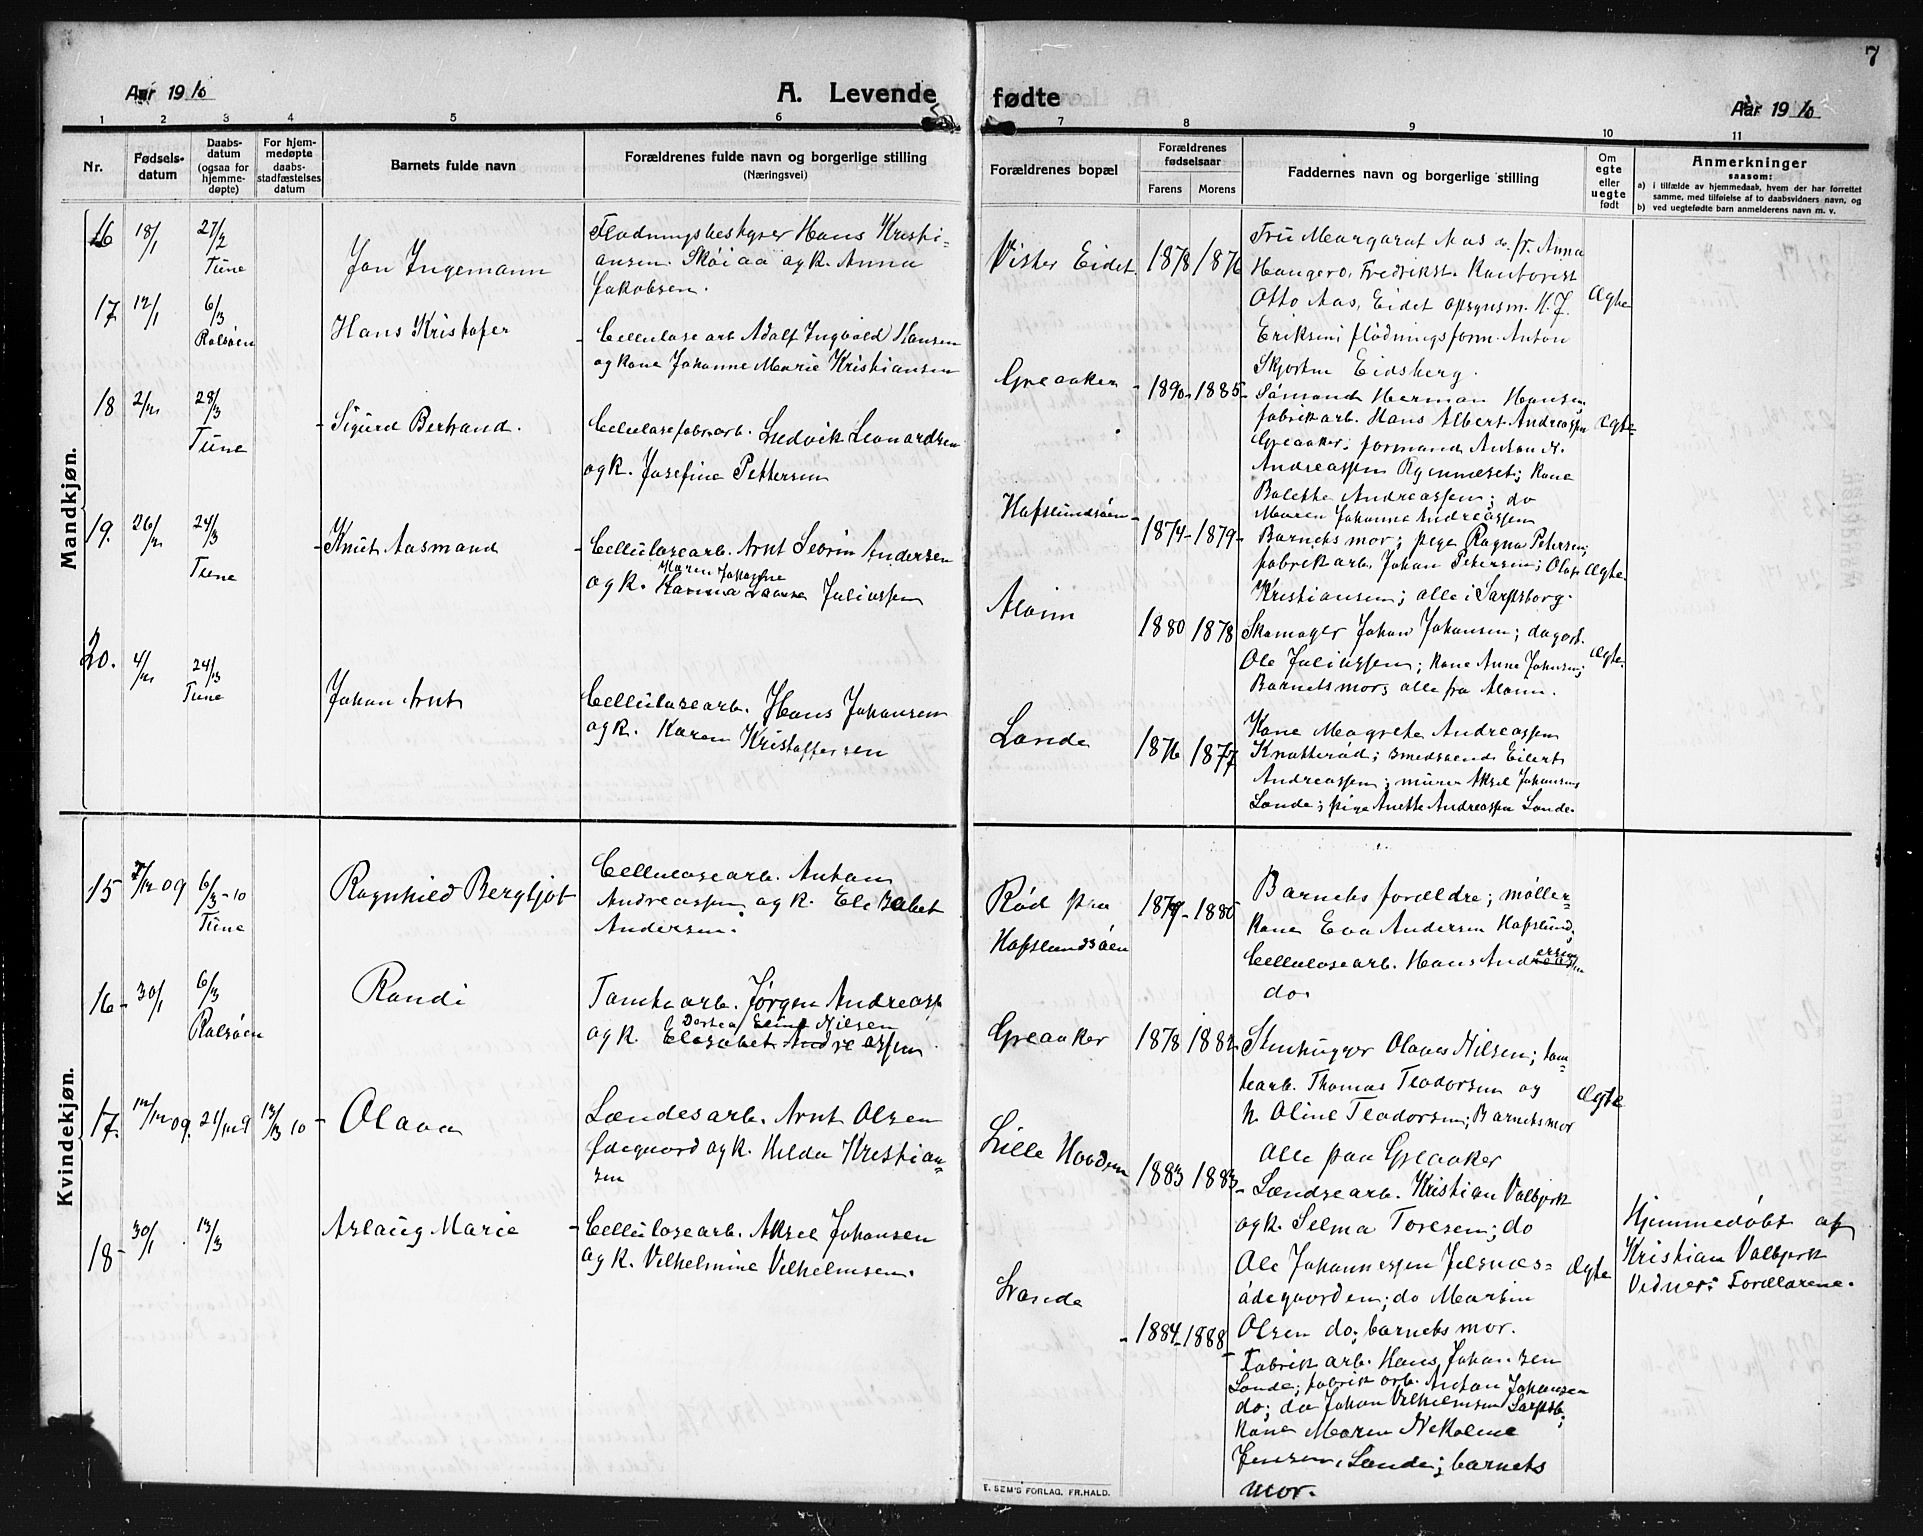 7
Aar 1910
A. Levende
fødte
Aar 1910
1 2 3 4 5 6 7 8 9 10 11
Nr.
Fødsels-
datum
Daabs-
datum
(ogsaa for
hjemme-
døpte)
For hjem-
medøpte
daabs-
stadfæstelses
datum
Barnets fulde navn
Forældrenes fulde navn og borgerlige stilling
(Næringsvei)
Forældrenes bopæl
Forældrenes
fødselsaar
Farens Morens
Faddernes navn og borgerlige stilling
Om
egte
eller
uegte
født
Anmerkninger
saasom:
a) i tilfælde av hjemmedaab, hvem der har forrettet
samme, med tilføielse af to daabsvidners navn, og
b) ved uegtefødte barn anmelderens navn m. v.
Mandkjøn.
16 18/1 27/2
Tune
Jon Ingemann
Flødningsbestyrer Hans Kristi-
ansen Skøiaa og k. Anna
Jakobsen.
Vister Eidet. 1878 1876
Fru Margarat Aas do. fr. Anna
Haugero, Fredrikst. Kantorist
Otto Aas, Eidet opsynsm. K. J.
Eriksen; flødningsform. Anton
Skjortne Eidsberg.
Ægte
17 12/1 6/3
Rolsøen
Hans Kristofer
Cellulosearb. Adolf Ingvald Hansen
og kone Johanne Marie Kristiansen
Greaaker - 1890 - 1885 -
Sømand Herman Hansen,
fabrikarb. Hans Albert Andreassen
Greaaker; formand Anton A.
Andreassen; kone
Bolette Andreassen; do
Maren Johanne Andreassen
Ægte
18 2/12 28/3
Tune
Sigurd Bertrand.
Cellulosefabr.arb. Ludvik Leonardsen
og k. Josefine Pettersen
Hafslundsøen - 1874 - 1879 -
Barnets mor; pige Ragna Petersen;
fabrikarb. Johan Petersen; Olaf
Kristiansen; alle i Sarpsborg.
Ægte.
19. 26/12 24/3
Tune
Knut Aasmand
Cellulosearb. Arnt Severin Andersen
Maren Johanne
og k. Hanna Juliassen
Alvim 1880 1878
Skomager Johan Johansen; dagarb.
Ole Juliassen; kone Anna Johansen;
Barnets mor; alle fra Alvim.
Ægte.
20. 4/12 24/3
Tune
Johan Arnt
Cellulosearb. Hans Johansen
og k. Karen Kristoffersen
Lande 1876 1877
Kone Magrete Andreassen
Knatterød; smedsvend Eilert
Andreassen; murer Aksel Johansen
Lande; pige Anette Andreassen Lande.
Kvindekjøn.
15 7/12 09 6/3-10
Tune
Ragnhild Bergljot
Cellulosearb. Anton
Andreassen og k. Elisabet
Andersen.
Rød paa
Hafslundsøen
1879 - 1880
Barnets forældre; møller-
kone Eva Andersen Hafslund;
Cellulosearb. Hans Andersen
do.
16 - 30/1 6/3
Rolsøen
Randi
Tomtearb. Jørgen Andreass.
Dortea Eline Nilsen
og k. Elisabet Andreassen
Greaaker 1878 1882
Stenhugger Olaves Nilsen; tom-
tearb. Thomas Teodorsen og
k. Oline Teodorsen; Barnets mor
Alle paa Greaaker
Ægte
17. 12/12 09. 21/12 9 13/3 10 -
Olava
Lændsearb. Arnt Olsen
Ødegaard og k. Hilda Kristian-
sen
Lille Hovdsen 1883 1883 -
Lændsearb. Kristian Valbjørk
og k. Selma Toresen; do
Ole Johannessen Jelsnes-
ødegaarden; do Martin
Olsen do; barnets mor.
Ægte
Hjemmedøbt af
Kristian Valbjørk
Vidner: Forældrene.
18 - 30/1 13/3
Aslaug Marie
Cellulosearb. Aksel Johansen
og k. Vilhelmine Vilhelmsen.
Lande - 1884 - 1888 -
Fabrikarb. Hans Johansen
Lande; fabrikarb. Anton Johansen
do; do Johan Vilhelmsen Sarpsb.;
Kone Maren Nikoline
Jensen, Lande; barnets
mor.
E. SEM'S FORLAG, FR.HALD.